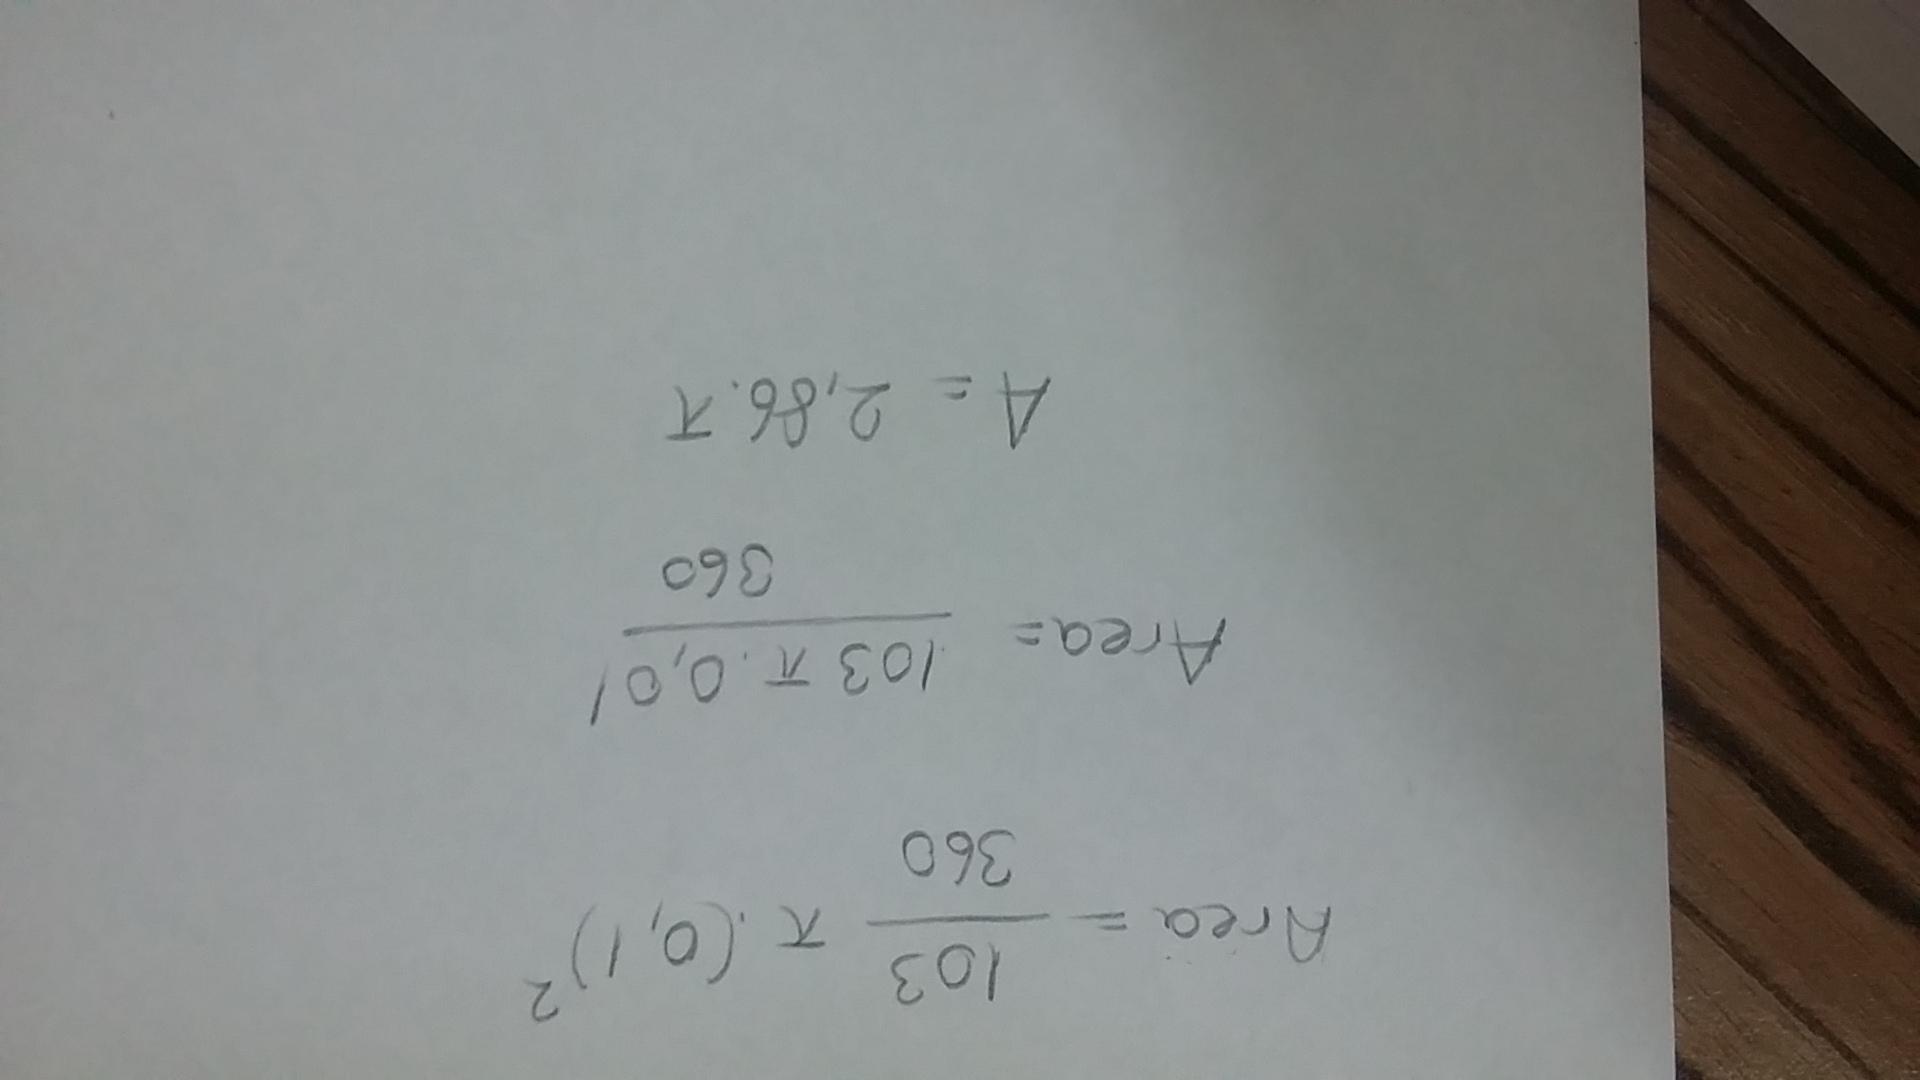 Area = 103/360 π.(0,1)²
Area= 103 π. 0,01/360
A= 2,86. π